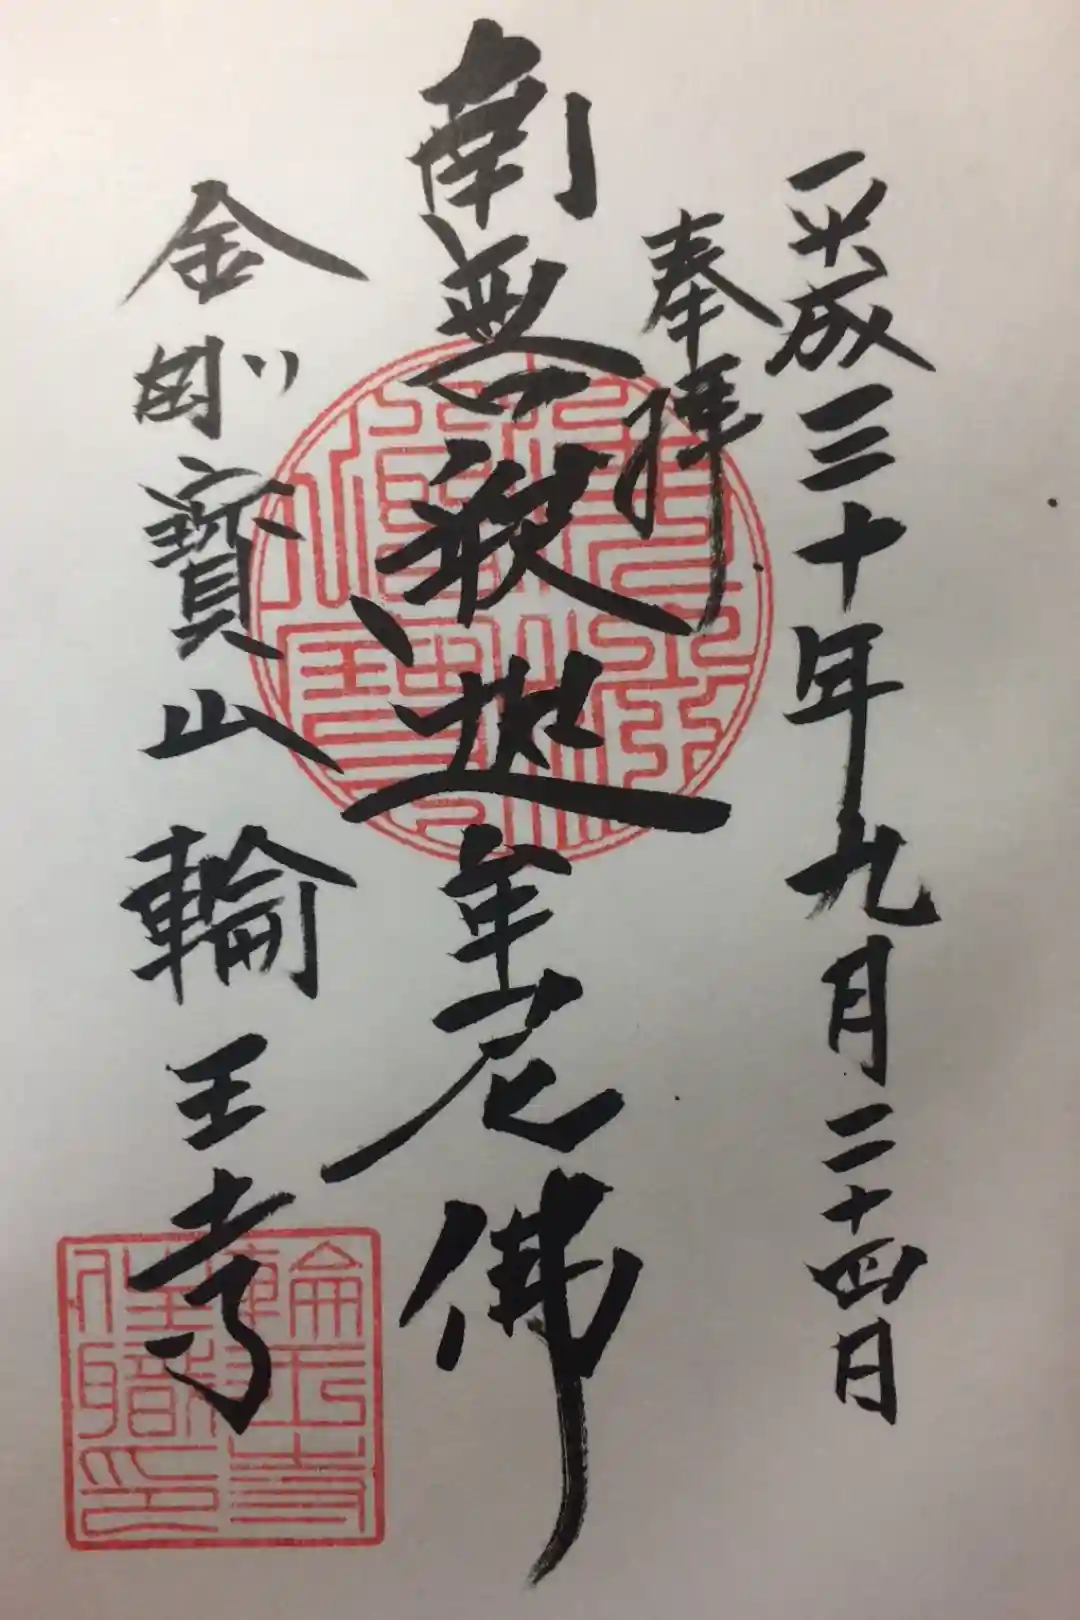 平成三十年九月二十四日
奉拝
南無釈迦牟尼佛
金剛寳山輪王寺
輪王寺
住職印